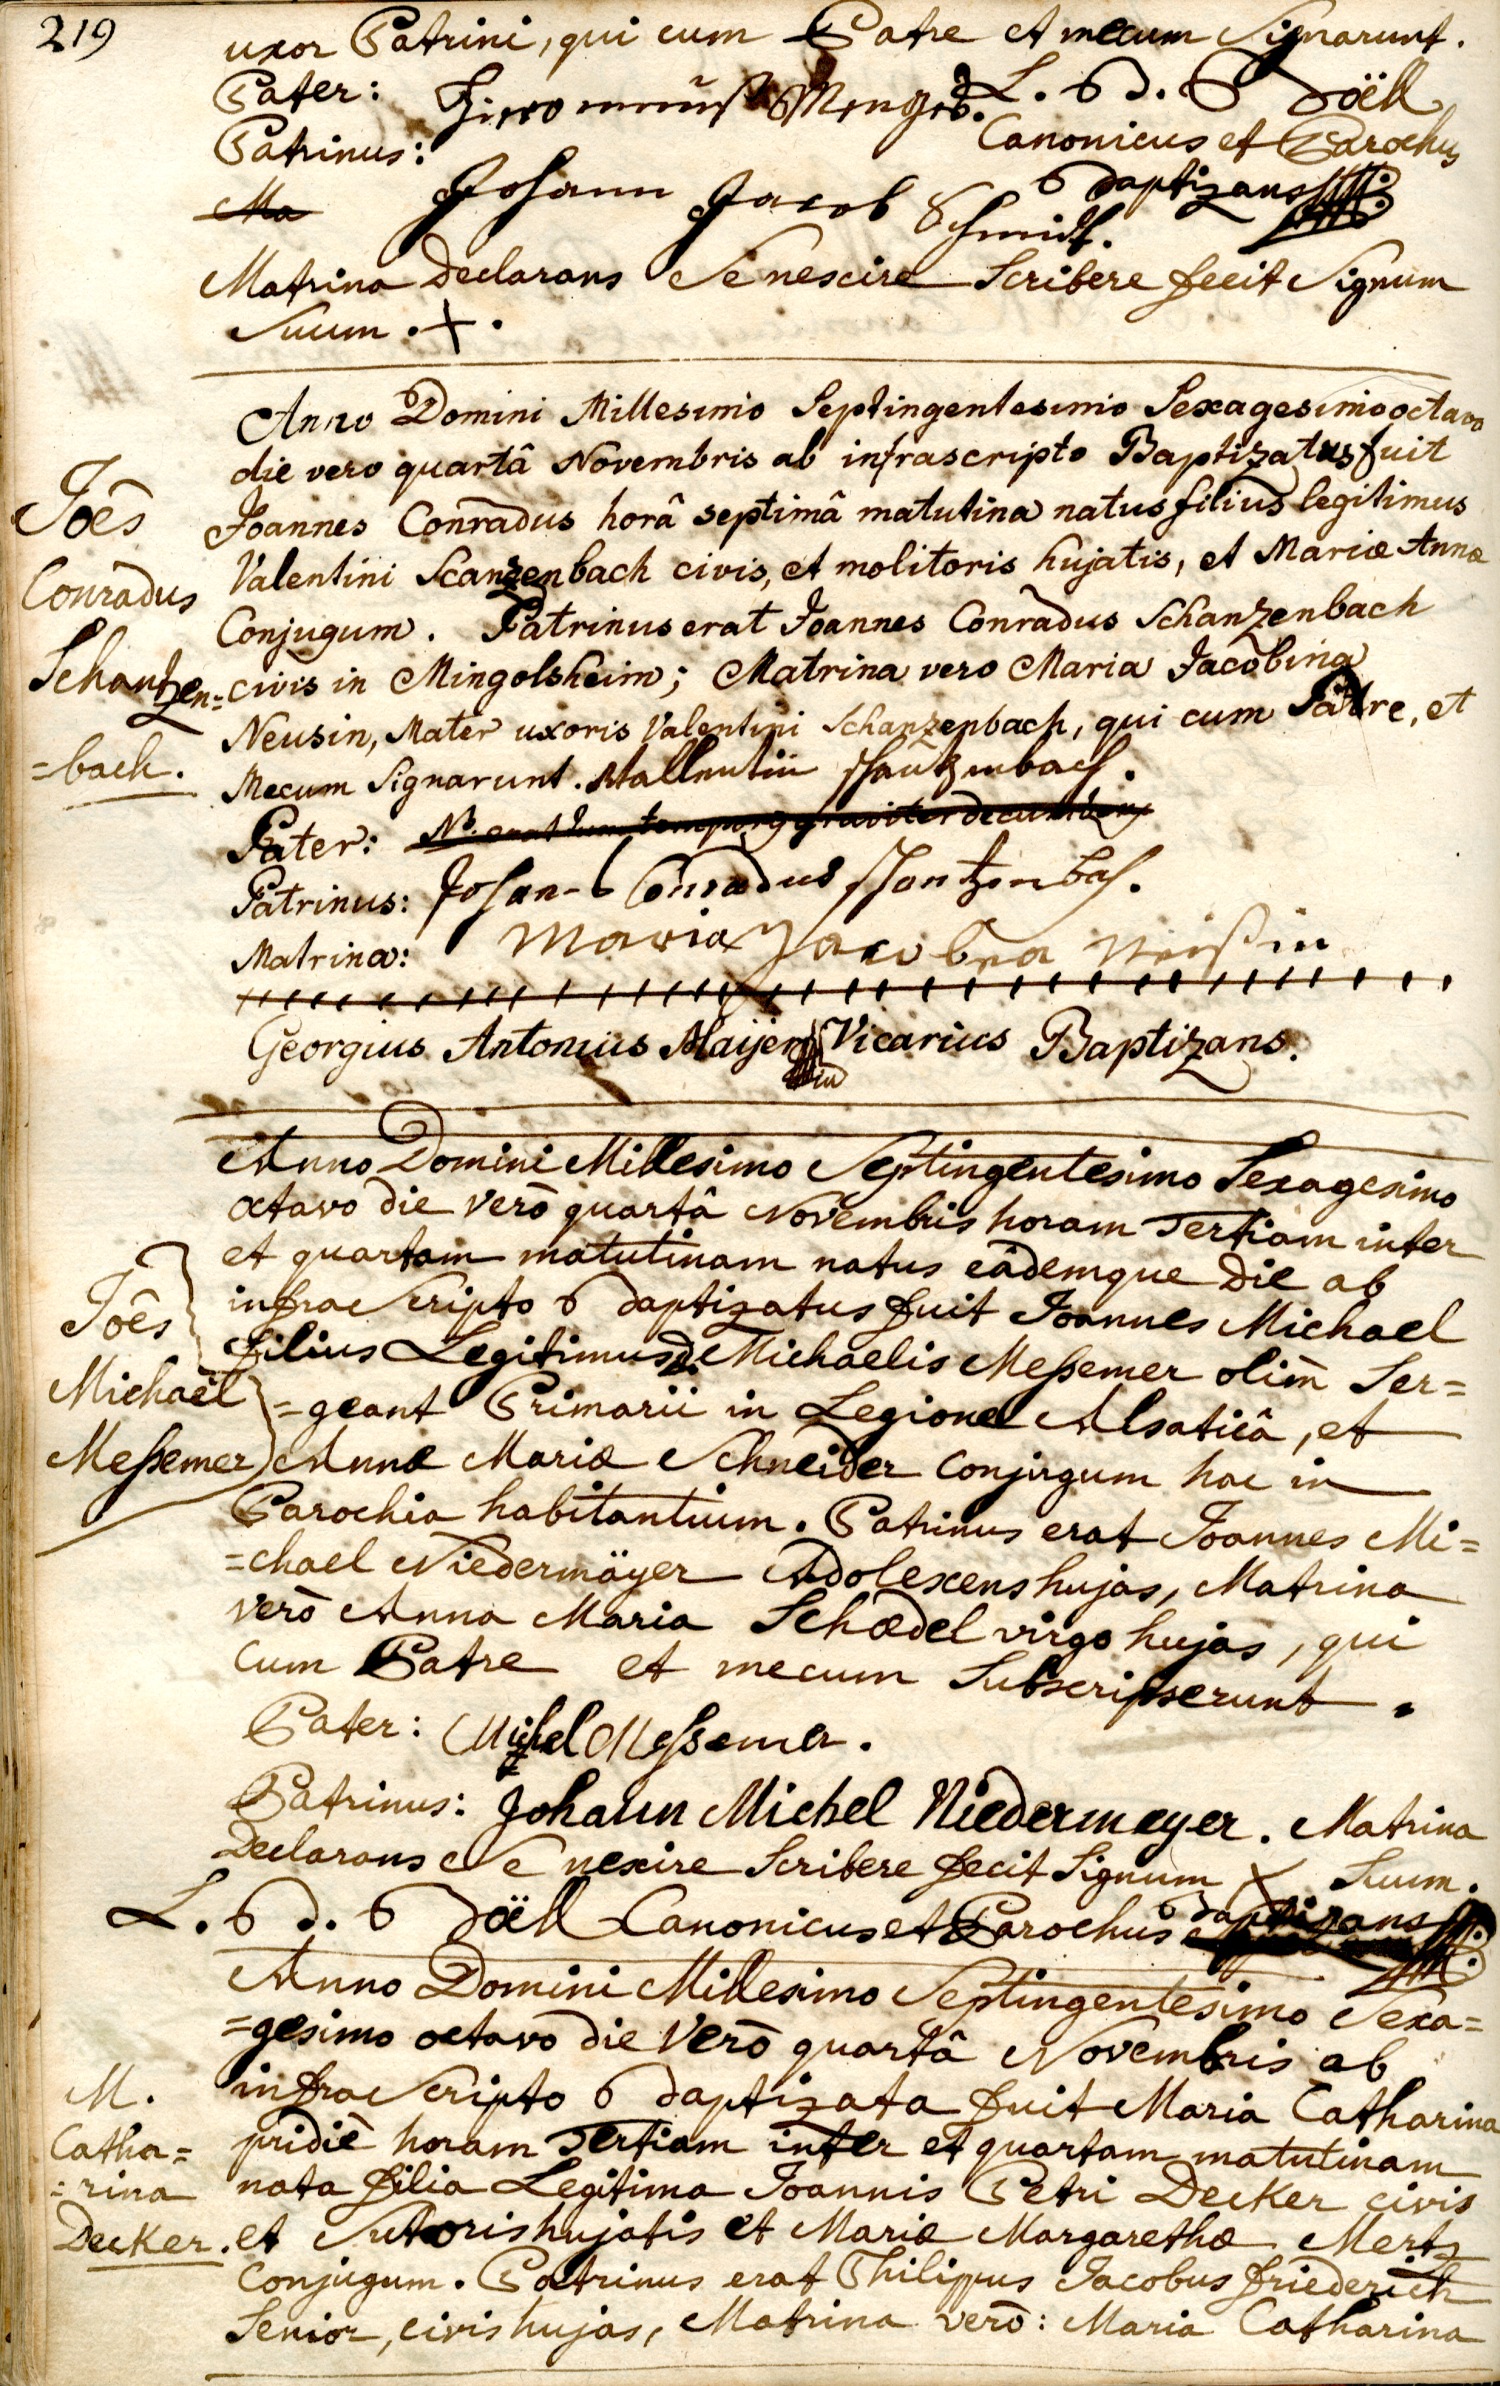 219
uxor Patrini, qui cum Patre et mecum Signarunt.
Pater:
L. B d. B Doëll
Patrinus:
Canonicus et Parochus
Ma
Johann Jacob Schmidt.
Baptizans
Matrina Declarans Se nescire Scribere fecit Signum
Suum . + .
Anno Domini Millesimo Septingentesimo Sexagesimo octavo
die vero quartâ Novembris ab infrascripto Baptizatus fuit
Joannes Conradus horâ septimâ matutina natus filius legitimus
Valentini Scanzenbach civis, et molitoris hujatis, et Mariæ Annæ
Conjugum. Patrinus erat Joannes Conradus Schanzenbach
civis in Mingolsheim; Matrina vero Maria Jacobina
Neusin, Mater uxoris Valentini Schanzenbach, qui cum Patre, et
Mecum Signarunt. Wallentin Schantzenbach.
Joês
Conradus
Schantzen=
=bach.
Pater:
Patrinus: Johan Conradus Schantzenbach.
Matrina: Maria Jacobea Neißin
Georgius Antonius Maijer Vicarius Baptizans.
Anno Domini Millesimo Septingentesimo Sexagesimo
octavo die verò quartâ Novembris horam Tertiam inter
et quartam matutinam natus eâdemque die ab
infra Scripto Baptizatus fuit Joannes Michael
filius Legitimus D. Michaelis Meßemer olim Ser=
=geant Primarii in Legione Alsaticâ, et
Annæ Mariæ Schneider conjugum hac in
Parochia habitantium. Patrinus erat Joannes Mi=
=chael Niedermäyer Adolescens hujas, Matrina
verò Anna Maria Schædel virgo hujas, qui
cum Patre et mecum Subscripserunt.
Joês
Michaël
Meßemer
Pater: Michel Meßemer.
Patrinus: Johann Michel Niedermeyer. Matrina
Declarans Se nescire Scribere fecit Signum X Suum.
L. B d. B Doëll Canonicus et Parochus Baptizans
Anno Domini Millesimo Septingentesimo Sexa=
=gesimo octavo die Verò quartâ Novembris ab
infra Scripto Baptizata fuit Maria Catharina
pridiè horam Tertiam inter et quartam matutinam
nata filia Legitima Joannis Petri Decker civis
et Sutoris hujatis et Mariæ Margarethæ Mertz
Conjugum. Patrinus erat Philippus Jacobus Friederich
Senior, civis hujas, Matrina verò: Maria Catharina
M.
Catha=
=rina
Decker.